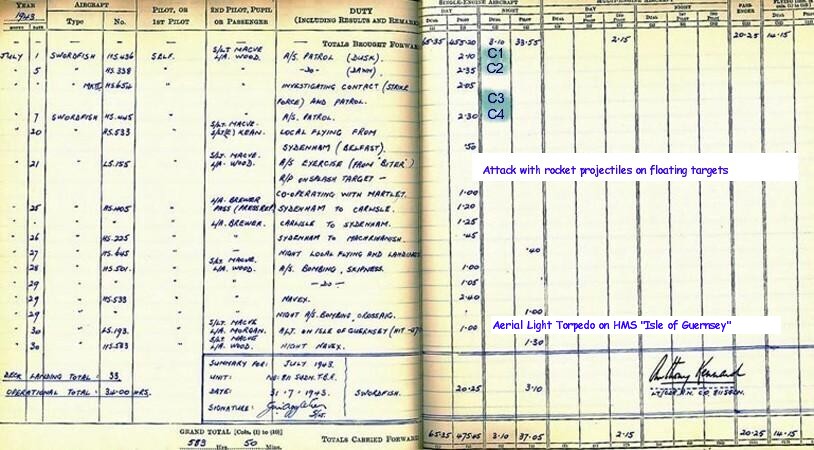 YEAR AIRCRAFT PILOT, OR 2ND PILOT, PUPIL DUTY
1943 Type No. 1ST PILOT OR PASSENGER (INCLUDING RESULTS AND REMARKS)
MONTH DATE
SINGLE-ENGINE AIRCRAFT
DAY NIGHT DAY NIGHT PASSENGER
DUAL PILOT DUAL PILOT
— — — — — TOTALS BROUGHT FORWARD 65·35 455·20 3·10 33·55 2·15 20·25 14·15
JULY 1 SWORDFISH HS.436 SELF. S/LT MACVE L/A. WOOD. A/S. PATROL (DUSK). 2·10 C1
" 5 " HS.338 " " -DO- (DAWN). 2·35 C2
HS.654 " " INVESTIGATING CONTACT (STRIKE 2·05
FORCE) AND PATROL. C3
" 7 SWORDFISH HS.445 " " A/S. PATROL. 2·30 C4
" 20 " HS.533 " S/LT. MACVE. S/LT(E) KEAN. LOCAL FLYING FROM
SYDENHAM (BELFAST). ·50
" 21 " LS.155 " S/LT. MACVE. L/A. WOOD. A/S EXERCISE (FROM 'BITER')
R/P ON SPLASH TARGET — Attack with rocket projectiles on floating targets
CO-OPERATING WITH MARTLET. 1·00
" 25 " HS.405 " L/A. BREWER PASS (PRESS REP) SYDENHAM TO CARLISLE. 1·20
" " " " " L/A. BREWER. CARLISLE TO SYDENHAM. 1·25
" 26 " HS.225 " " SYDENHAM TO MACHRIHANISH. ·45
" 27 " HS.645 " — NIGHT LOCAL FLYING AND LANDINGS ·40
" 28 " HS.501. " S/LT. MACVE L/A. WOOD. A/S. BOMBING, SKIPNESS. 1·00
" 29 " " " " -DO- 1·05
" 29 " HS.533 " " NAVEX. 2·40
" 29 " " " " NIGHT A/S. BOMBING, CROSSAIG. 1·00
" 30 " LS.193. " S/LT MACVE L/A. MORGAN. A.L.T. ON ISLE OF GUERNSEY (HIT 1·00 Aerial Light Torpedo on HMS "Isle of Guernsey"
" 30 " HS.583 " S/LT MACVE L/A. WOOD. NIGHT NAVEX. 1·30
SUMMARY FOR: JULY 1943.
DECK LANDING TOTAL: 33. UNIT: No: 811 SQDN. T.B.R.
OPERATIONAL TOTAL: 34·00 HRS. DATE: 31·7·1943. SWORDFISH. 20·25 3·10
SIGNATURE:
Anthony Kennard
LT/CDR R.N. C.O. 811 SQDN.
GRAND TOTAL [Cols. (1) to (10)]
583 Hrs. 50 Mins. TOTALS CARRIED FORWARD 65·35 475·45 3·10 37·05 2·15 20·25 14·15